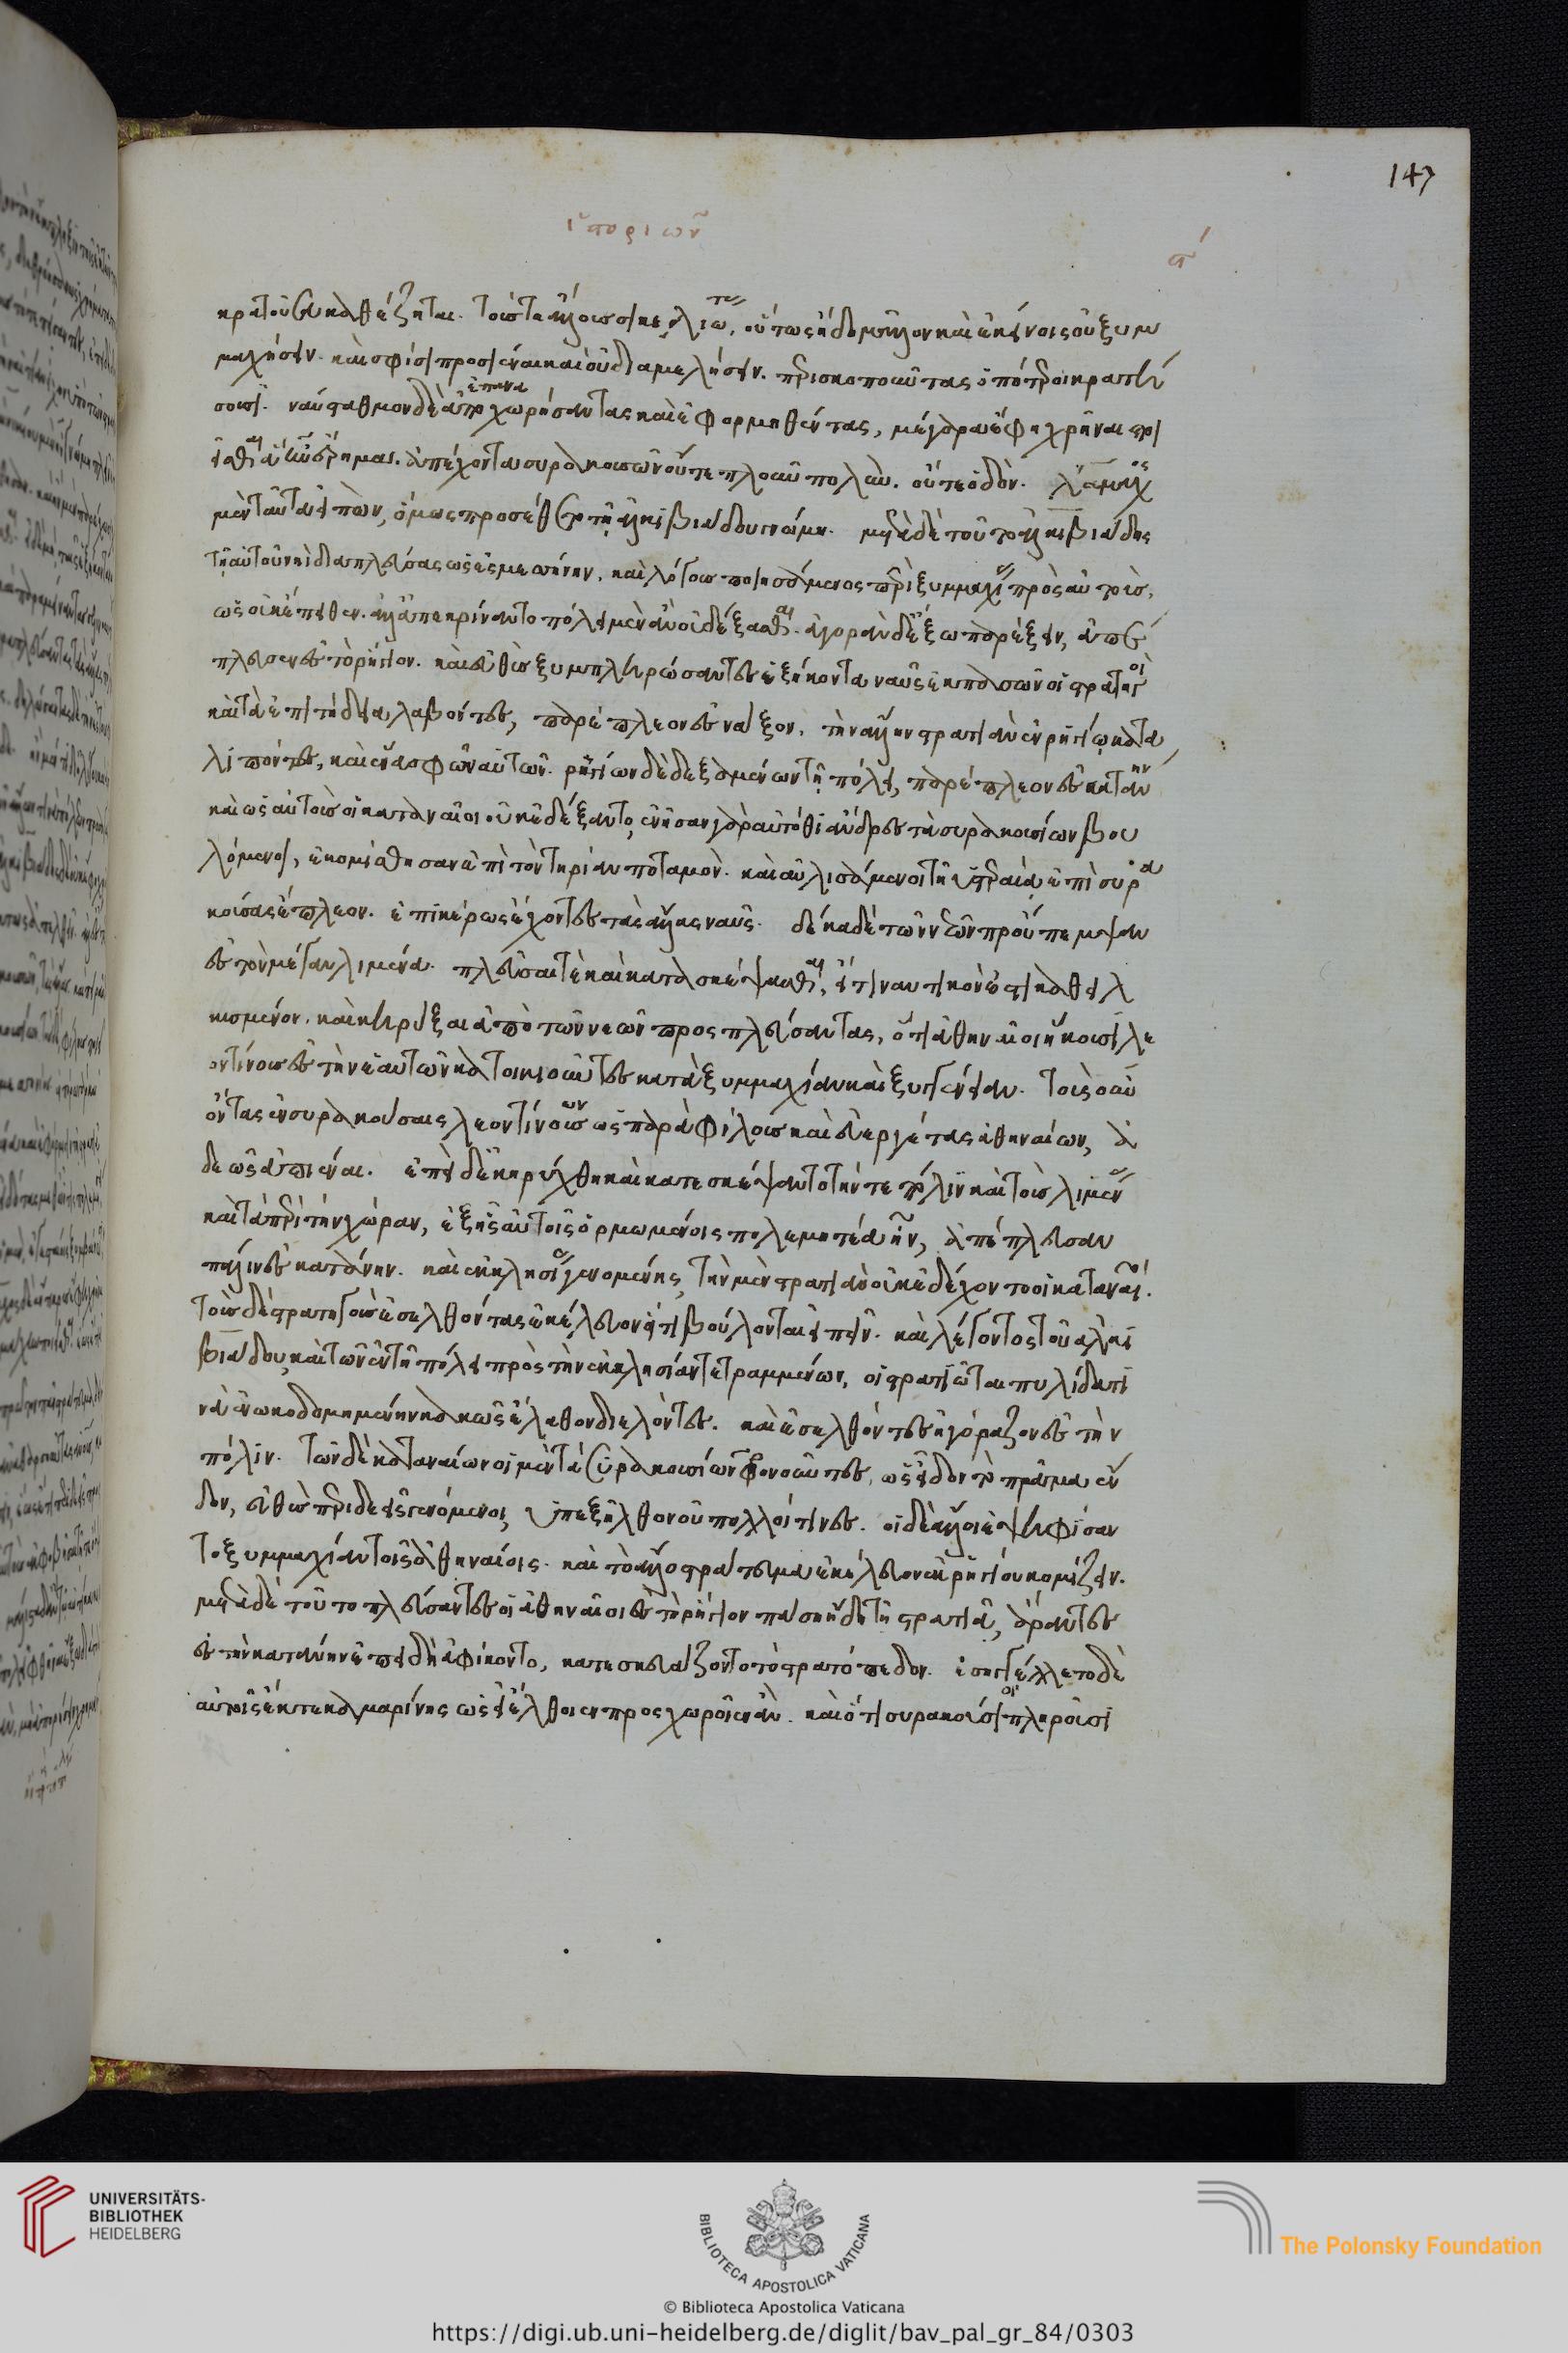 ἱστοριῶν
ϛ΄
147
κρατοῦσι καθέζηται. τούς τε ἄλλους σικελιώτας, οὕτως ἤδη μᾶλλον καὶ ἐκείνοις οὐ ξυμ
μαχήσειν. καὶ σφίσι προσιέναι καὶ οὐ διαμελήσειν. περισκοποῦντας ὁπότεροι κρατή
σουσι. ναύσταθμον δὲ ἐπανα χωρήσαντας καὶ ἐφορμηθέντας, μέγαρα ἔφη χρῆναι ποι
εῖσθαι ἃ ἦν ἐρῆμαι. ἀπέχοντα συρακουσῶν οὔτε πλοῦν πολὺν. οὔτε ὁδὸν. λάμαχος
μὲν ταῦτα εἰπὼν, ὅμως προσέθετο τῇ ἀλκιβιάδου γνώμῃ. μετὰ δὲ τοῦτο ἀλκιβιάδης
τῇ αὐτοῦ νηὶ διαπλεύσας ὡς ἐς μεσήνην. καὶ λόγους ποιησάμενος περὶ ξυμμαχίας πρὸς αὐτοὺς.
ὡς οὐκ ἔπειθεν. ἀλλ' ἀπεκρίναντο πόλει μὲν ἂν οὐ δέξασθαι. ἀγορὰν δ' ἔξω παρέξειν, ἀπέ
πλευσεν ἐς τὸ ῥήγιον. καὶ εὐθὺς ξυμπληρώσαντες ἑξήκοντα ναῦς ἐκ πασῶν οἱ στρατηγοὶ
καὶ τὰ ἐπιτήδεια λαβόντες, παρέπλεον ἐς νάξον. τὴν ἄλλην στρατιὰν ἐν ῥηγίῳ κατα
λιπόντες, καὶ ἕνα σφῶν αὐτῶν. ῥηγίων δὲ δεξαμένων τῇ πόλει, παρέπλεον ἐς κατάνην
καὶ ὡς αὐτοὺς οἱ καταναῖοι οὐκ ἐδέξαντο, ἐνῆσαν γὰρ αὐτόθι ἄνδρες τὰ συρακουσίων βου
λόμενοι, ἐκομίσθησαν ἐπὶ τὸν τηρίαν ποταμὸν. καὶ αὐλισάμενοι τῇ ὑστεραίᾳ ἐπὶ συρα
κούσας ἔπλεον. ἐπὶ κέρως ἔχοντες τὰς ἄλλας ναῦς. δέκα δὲ τῶν νεῶν προὔπεμψαν
ἐς τὸν μέγαν λιμένα. πλεῦσαί τε καὶ κατασκέψασθαι, εἴ τι ναυτικὸν ἐστὶ καθειλ
κυσμένον. καὶ κηρύξαι ἀπὸ τῶν νεῶν προσπλεύσαντας, ὅτι ἀθηναῖοι ἥκουσι λε
οντίνους ἐς τὴν ἑαυτῶν κατοικιοῦντες κατὰ ξυμμαχίαν καὶ ξυγγένειαν. τοὺς οὖν
ὄντας ἐν συρακούσαις λεοντίνων ὡς παρὰ φίλους καὶ εὐεργέτας ἀθηναίων, ἀ
δεῶς ἀπιέναι. ἐπεὶ δ' ἐκηρύχθη καὶ κατεσκέψαντο τήν τε πόλιν καὶ τοὺς λιμένας
καὶ τὰ περὶ τὴν χώραν, ἐξ ἧς αὐτοῖς ὁρμωμένοις πολεμητέα ἦν, ἀπέπλευσαν
πάλιν ἐς κατάνην. καὶ ἐκκλησίας γενομένης, τὴν μὲν στρατιὰν οὐκ ἐδέχοντο οἱ καταναῖοι.
τοὺς δὲ στρατηγοὺς ἐσελθόντας ἐκέλευον εἴ τι βούλονται εἰπεῖν. καὶ λέγοντος τοῦ ἀλκι
βιάδου, καὶ τῶν ἐν τῇ πόλει πρὸς τὴν ἐκκλησίαν τετραμμένων, οἱ στρατιῶται πυλίδα τι
νὰ ἐνῳκοδομημένην κακῶς ἔλαθον διελόντες. καὶ ἐσελθόντες ἠγόραζον ἐς τὴν
πόλιν. τῶν δὲ καταναίων οἱ μὲν τὰ συρακουσίων φρονοῦντες, ὡς εἶδον τὸ στράτευμα ἔν
δον, εὐθὺς περιδεεῖς γενόμενοι, ὑπεξῆλθον οὐ πολλοί τινες. οἱ δὲ ἄλλοι ἐψηφίσαν
το ξυμμαχίαν τοῖς ἀθηναίοις. καὶ τὸ ἄλλο στράτευμα ἐκέλευον ἐκ ῥηγίου κομίζειν.
μετὰ δὲ τοῦτο πλεύσαντες οἱ ἀθηναῖοι ἐς τὸ ῥήγιον πάσῃ ἤδη τῇ στρατιᾷ, ἄραντες
ἐς τὴν κατάνην ἐπειδὴ ἀφίκοντο, κατεσκευάζοντο τὸ στρατόπεδον. ἐσηγγέλλετο δὲ
αὐτοῖς ἔκ τε καμαρίνης ὡς εἰ ἔλθοιεν προσχωροῖεν ἂν. καὶ ὅτι συρακούσιοι πληροῦσι
UNIVERSITÄTS-
BIBLIOTHEK
HEIDELBERG
BIBLIOTECA APOSTOLICA VATICANA
The Polonsky Foundation
© Biblioteca Apostolica Vaticana
https://digi.ub.uni-heidelberg.de/diglit/bav_pal_gr_84/0303